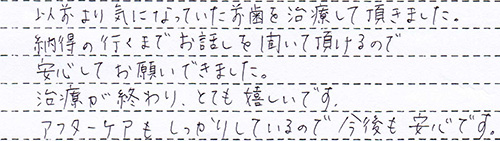 以前より気になっていた前歯を治療して頂きました。
納得の行くまでお話しを聞いて頂けるので
安心してお願いできました。
治療が終わり、とても嬉しいです。
アフターケアもしっかりしているので今後も安心です。